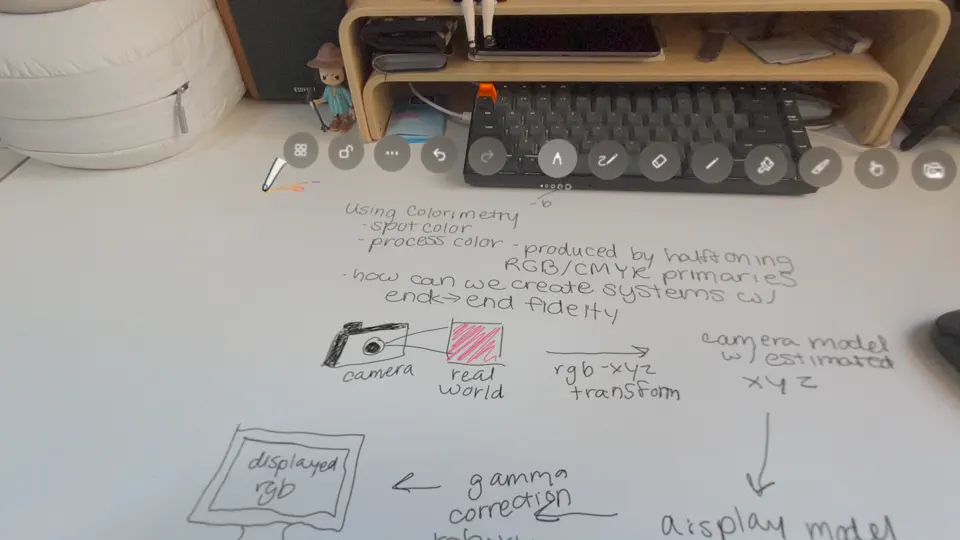 Using Colorimetry
- spot color
- process color - produced by halftoning
RGB/CMYK primaries
- how can we create systems w/
end→end fidelity
camera
real
world
rgb-xyz
transform
camera model
w/ estimated
xyz
displayed
rgb
gamma
correction
display model